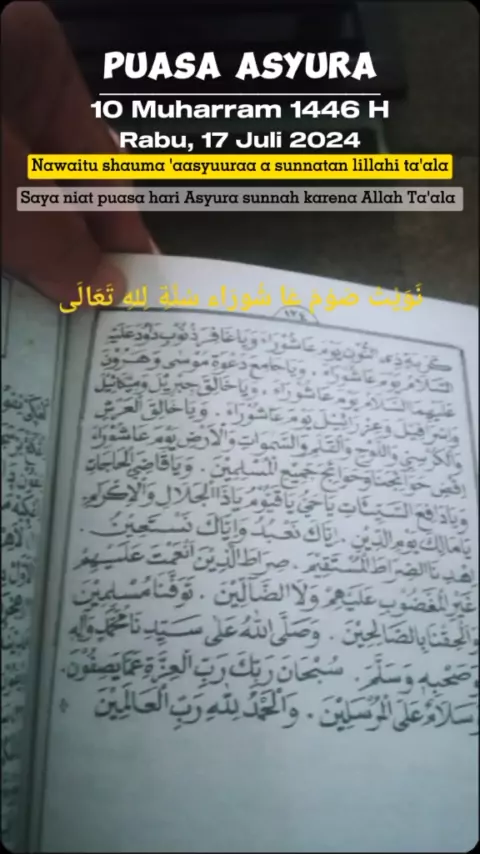 PUASA ASYURA
10 Muharram 1446 H
Rabu, 17 Juli 2024
Nawaitu shauma 'aasyuuraa a sunnatan lillahi ta'ala
Saya niat puasa hari Asyura sunnah karena Allah Ta'ala
نَوَيْتُ صَوْمَ عَا شُورَاءِ سُنَّةً لِلهِ تَعَالَى
١٣٤
كُرْبَةِ ذِى النُّوْنِ يَوْمَ عَاشُوْرَاءَ ، وَيَا غَافِرَ ذُنُوْبِ دَاوُدَ عَلَيْهِ
السَّلَامُ يَوْمَ عَاشُوْرَاءَ ، وَيَا جَامِعَ دَعْوَةِ مُوْسَى وَهٰرُوْنَ
عَلَيْهِمَا السَّلَامُ يَوْمَ عَاشُوْرَاءَ ، وَيَا خَالِقَ جِبْرِيْلَ وَمِيْكَائِيْلَ
وَإِسْرَافِيْلَ وَعِزْرَائِيْلَ يَوْمَ عَاشُوْرَاءَ ، وَيَا خَالِقَ الْعَرْشِ
وَالْكُرْسِيِّ وَاللَّوْحِ وَالْقَلَمِ وَالسَّمٰوَاتِ وَالْأَرْضِ يَوْمَ عَاشُوْرَاءَ
إِقْضِ حَوَائِجَنَا وَحَوَائِجَ جَمِيْعِ الْمُسْلِمِيْنَ ، وَيَا قَاضِيَ الْحَاجَاتِ
وَيَا دَافِعَ السَّيِّئَاتِ يَاحَيُّ يَاقَيُّوْمُ يَاذَا الْجَلَالِ وَالْإِكْرَامِ
يَا مَالِكَ يَوْمِ الدِّيْنِ ، إِيَّاكَ نَعْبُدُ وَإِيَّاكَ نَسْتَعِيْنُ ،
إِهْدِنَا الصِّرَاطَ الْمُسْتَقِيْمَ ، صِرَاطَ الَّذِيْنَ أَنْعَمْتَ عَلَيْهِمْ
غَيْرِ الْمَغْضُوْبِ عَلَيْهِمْ وَلَا الضَّالِّيْنَ ، تَوَفَّنَا مُسْلِمِيْنَ
وَأَلْحِقْنَا بِالصَّالِحِيْنَ ، وَصَلَّى اللهُ عَلَى سَيِّدِنَا مُحَمَّدٍ وَآلِهِ
وَصَحْبِهِ وَسَلَّمَ ، سُبْحَانَ رَبِّكَ رَبِّ الْعِزَّةِ عَمَّا يَصِفُوْنَ ،
وَسَلَامٌ عَلَى الْمُرْسَلِيْنَ ، وَالْحَمْدُ لِلهِ رَبِّ الْعَالَمِيْنَ